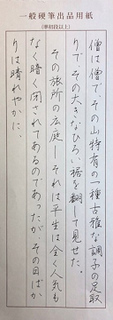 一般硬筆出品用紙
(準初段以上)
僧は僧で、その山特有の一種古雅な調子の足取
りで、その大きなひろい裾を翻して見せた。
その旅所の広庭―それは平生は全く人気も
なく暗く閉されてあるのであったが、その日ばか
りは晴れやかに、